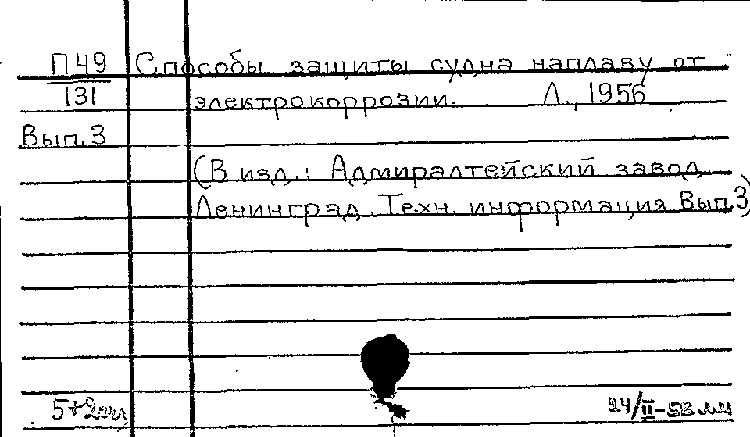 П49 Способы защиты судна наплаву от
131 электрокоррозии. Л., 1956
Вып.3
(В изд.: Адмиралтейский завод
Ленинград. Техн. информация Вып.3)
24/II-58